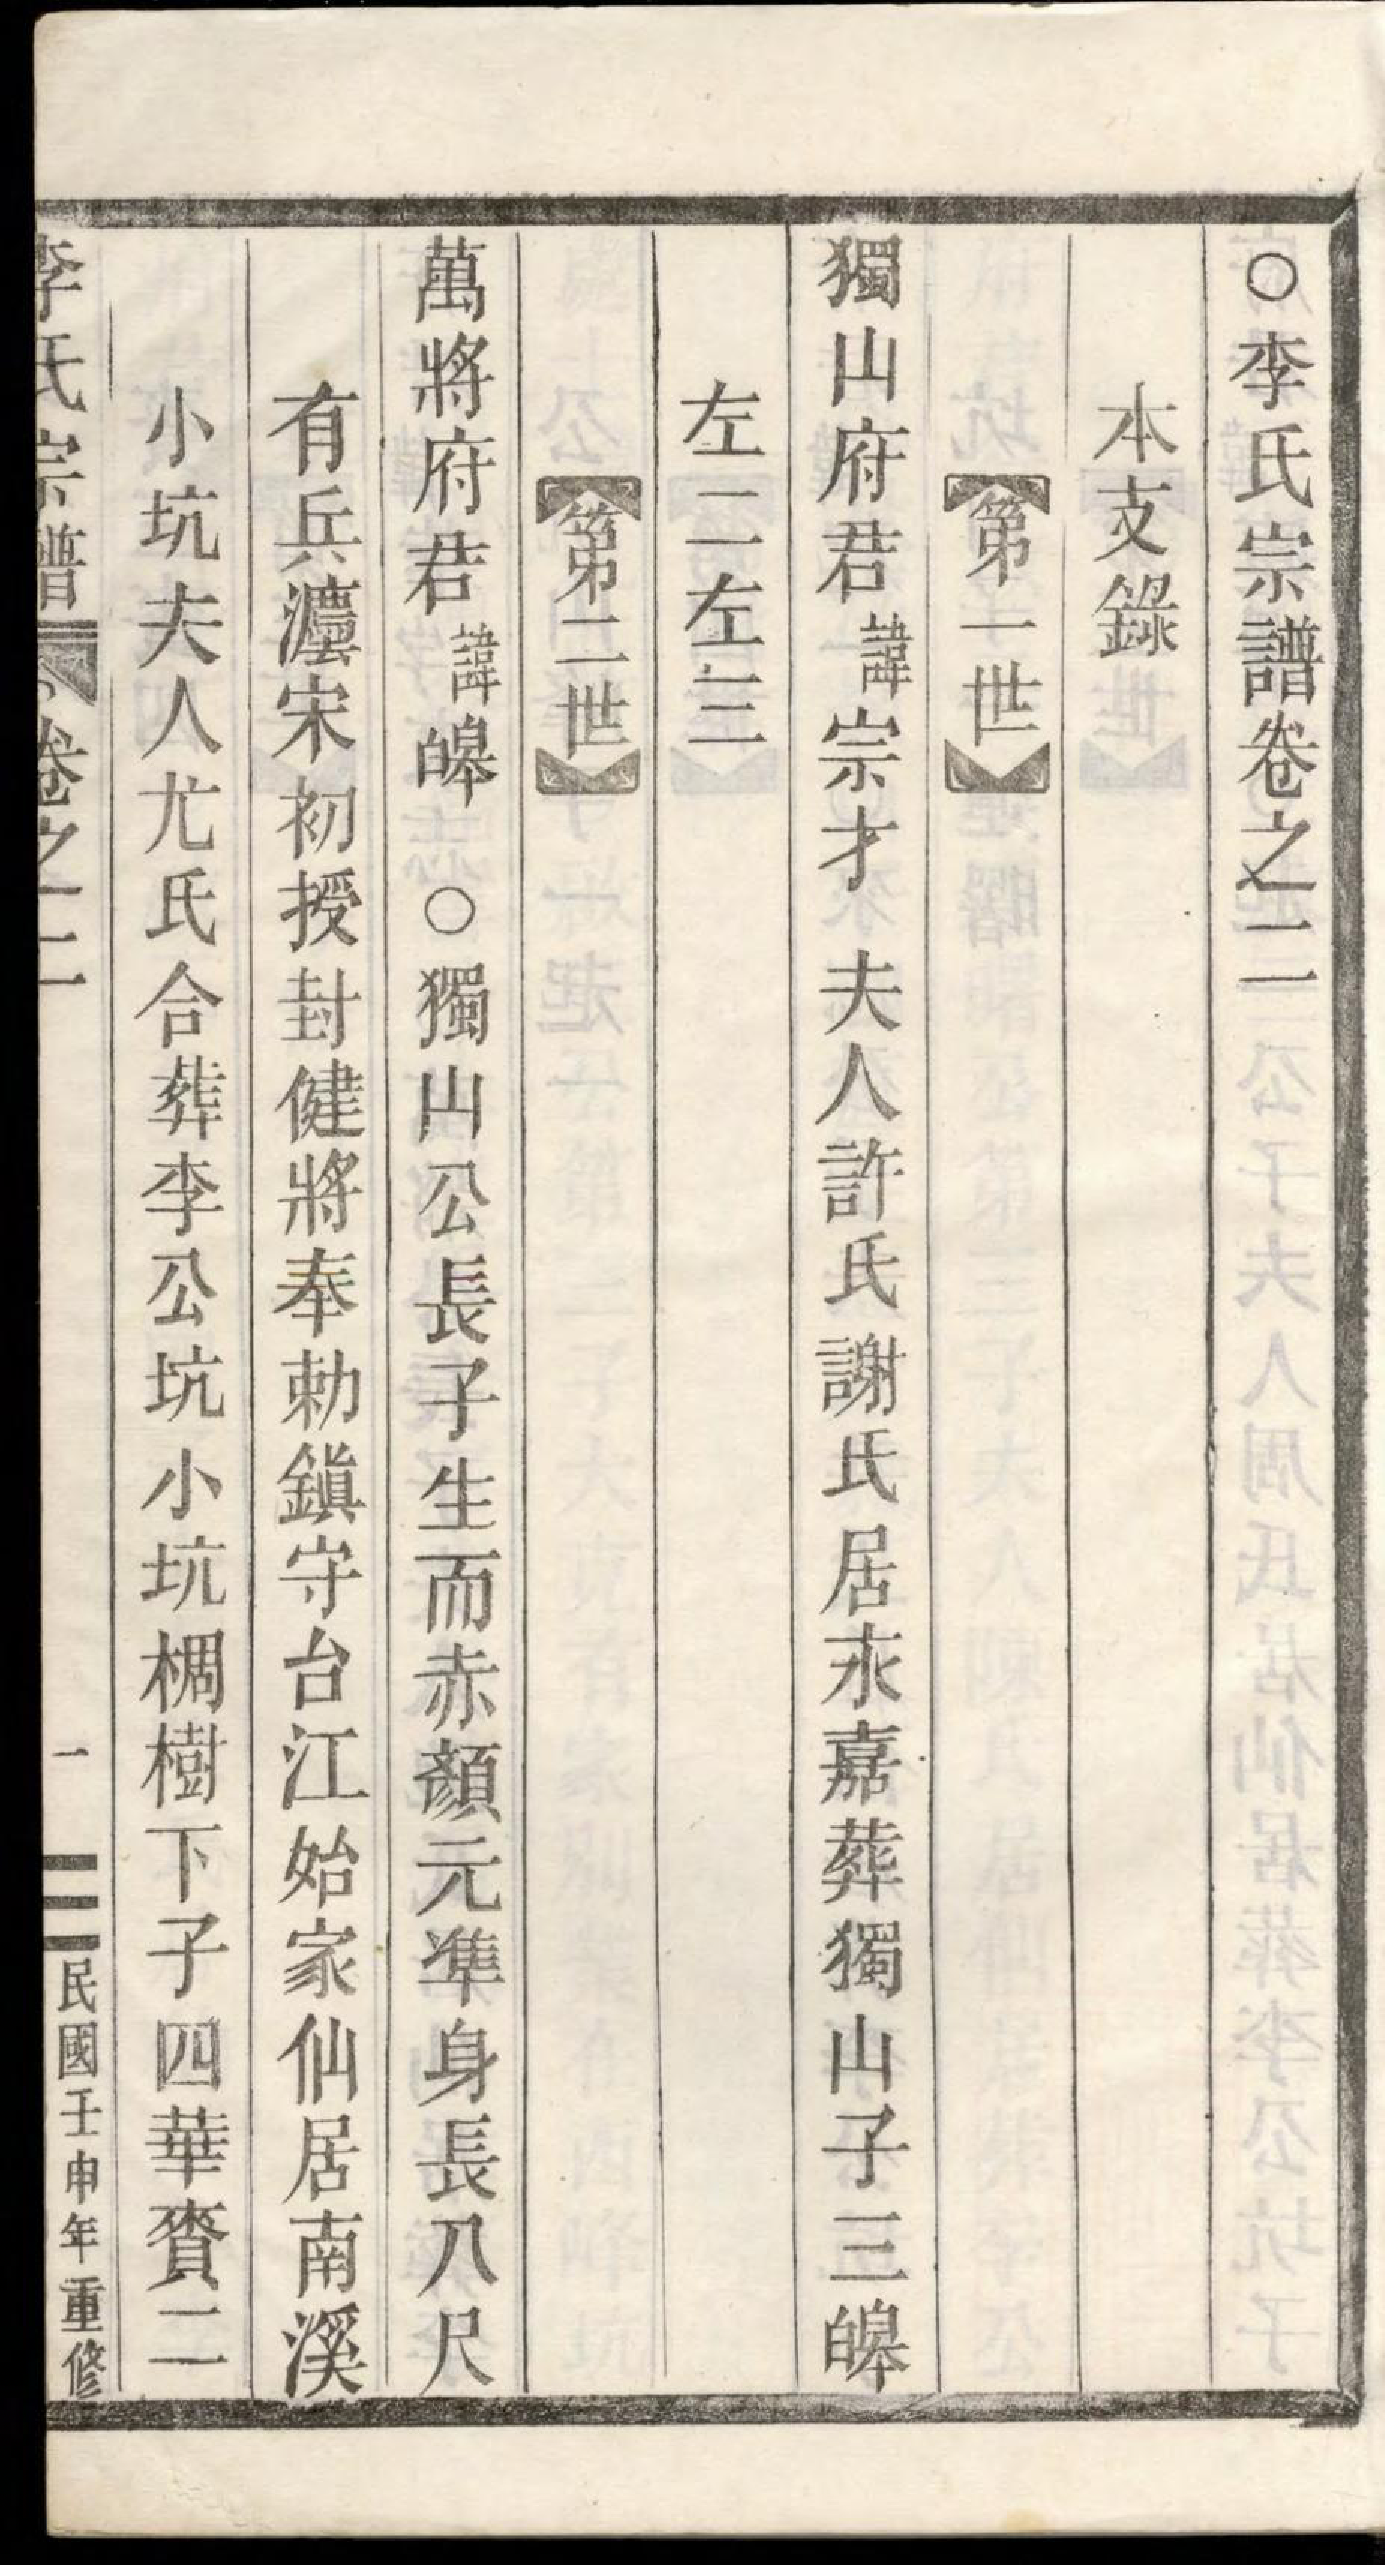 ○李氏宗譜卷之二
本支錄
第一世
獨山府君諱宗才 夫人許氏謝氏居永嘉葬獨山子三皞
左二左三
第二世
萬將府君諱皞 ○獨山公長子生而赤顏元準身長八尺
有兵灋宋初授封健將奉勅鎮守台江始家仙居南溪
小坑夫人尤氏合葬李公坑小坑椆樹下子四華賚二
李氏宗譜 卷之二 一 民國壬申年重修